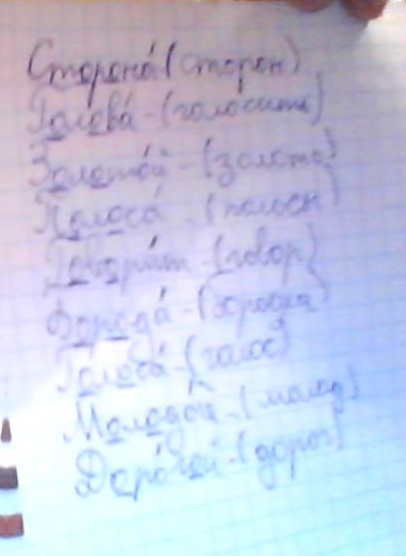 Сторона́ (сторон)
Голова́ - (голосити)
Золото́й - (золото)
Полоса́ - (полосы)
Говори́т - (говор)
Борода́ - (бородка)
Голоса́ - (голос)
Молодо́й - (молод)
Доро́гой - (дорог)